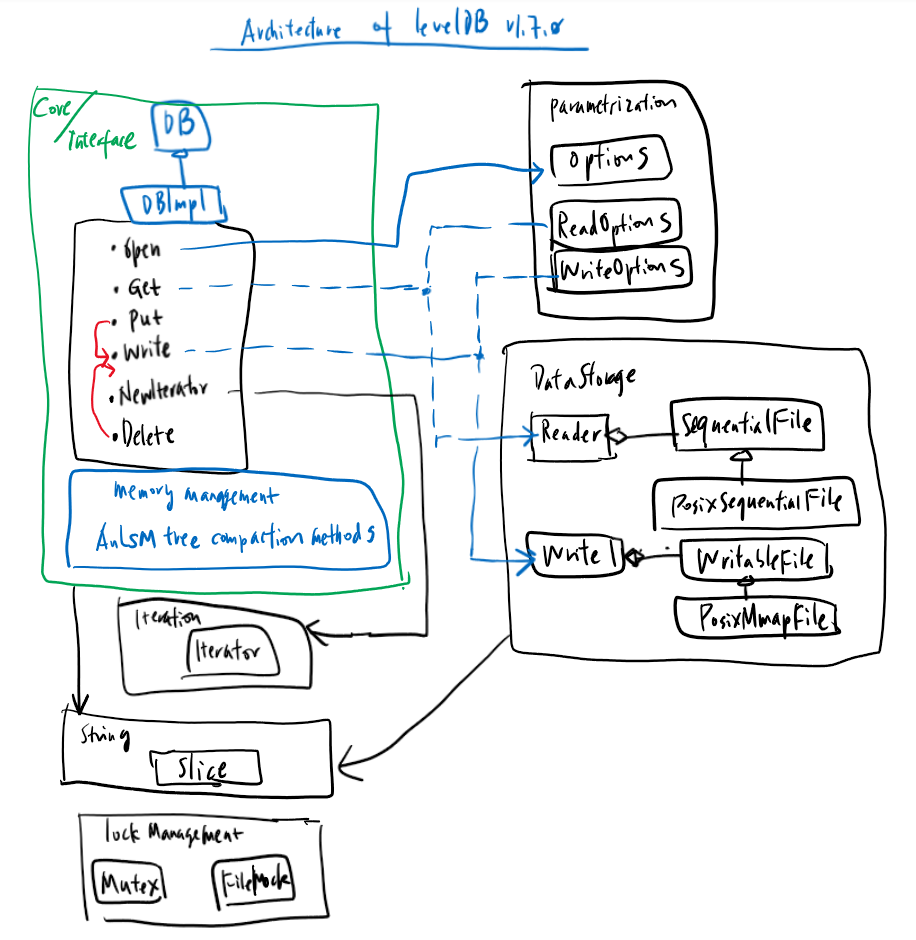 Architecture of levelDB v1.7.0
Core/
Interface
DB
DBImpl
• Open
• Get
• Put
• Write
• NewIterator
• Delete
memory management
An LSM tree compaction methods
Parametrization
Options
ReadOptions
WriteOptions
DataStorage
Reader
SequentialFile
PosixSequentialFile
Write
WritableFile
PosixMmapFile
Iteration
Iterator
String
Slice
lock Management
Mutex